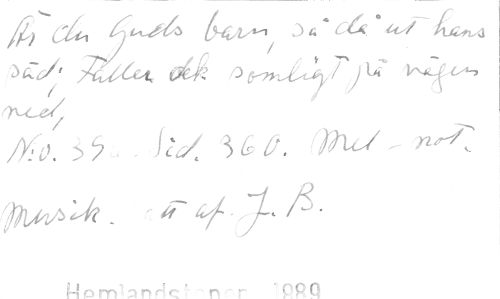 Är du Guds barn, så då ut hans
säd; Faller dek somligt på vägen
ned,
N:o. 39 Sid. 360. Mel - not.
Musik. att af. J. B.
Hemlandstoner 1889